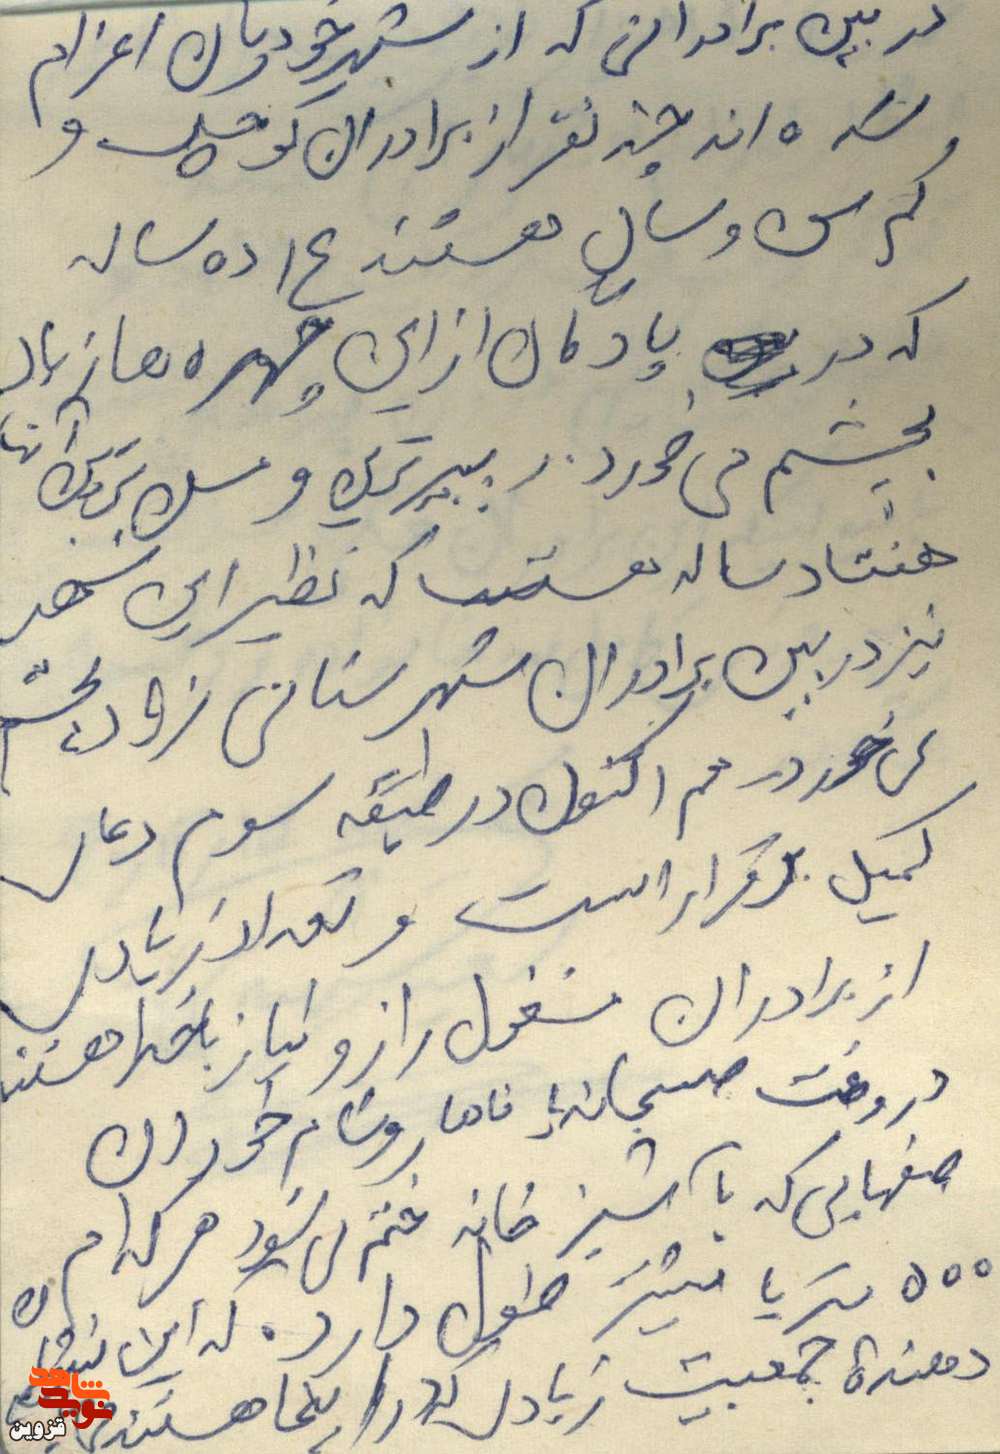 در بین برادرانی که از شهر خودمان اعزام
شده اند چند نفر از برادران کوچک و
کم سن و سال هستند ۱۴ ده ساله
که در پادگان از این چهره ها زیاد
بچشم می خورد. پیرترین و مسن ترین آنها
هفتاد ساله هست که نظیر این شخص
نیز در بین برادران شهرستانی زیاد بچشم
می خورد هم اکنون در طبقه سوم دعای
کمیل برقرار است و تعداد زیادی
از برادران مشغول راز و نیاز با خدا هستند
در وقت صبحانه یا ناهار و شام خوردن
صفهایی که به آشپز خانه ختم می شود هر کدام
۵۰۰ متر یا بیشتر طول دارد. که این نشان
دهنده جمعیت زیادی که در اینجا هستند
شاهد
نوید
قزوین